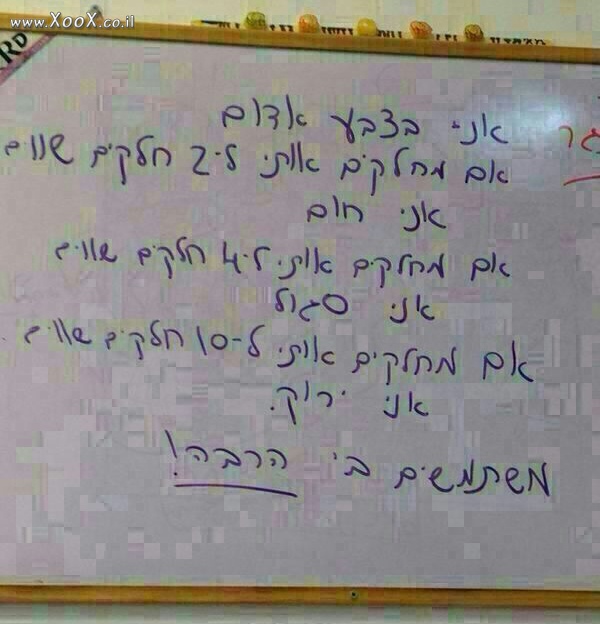 www.XooX.co.il
RD
גר
אני בצבע אדום
אם מחלקים אותי ל-2 חלקים שווים
אני חום
אם מחלקים אותי ל-4 חלקים שווים
אני סגול
אם מחלקים אותי ל-10 חלקים שווים
אני ירוק.
משתמשים בי הרבה!